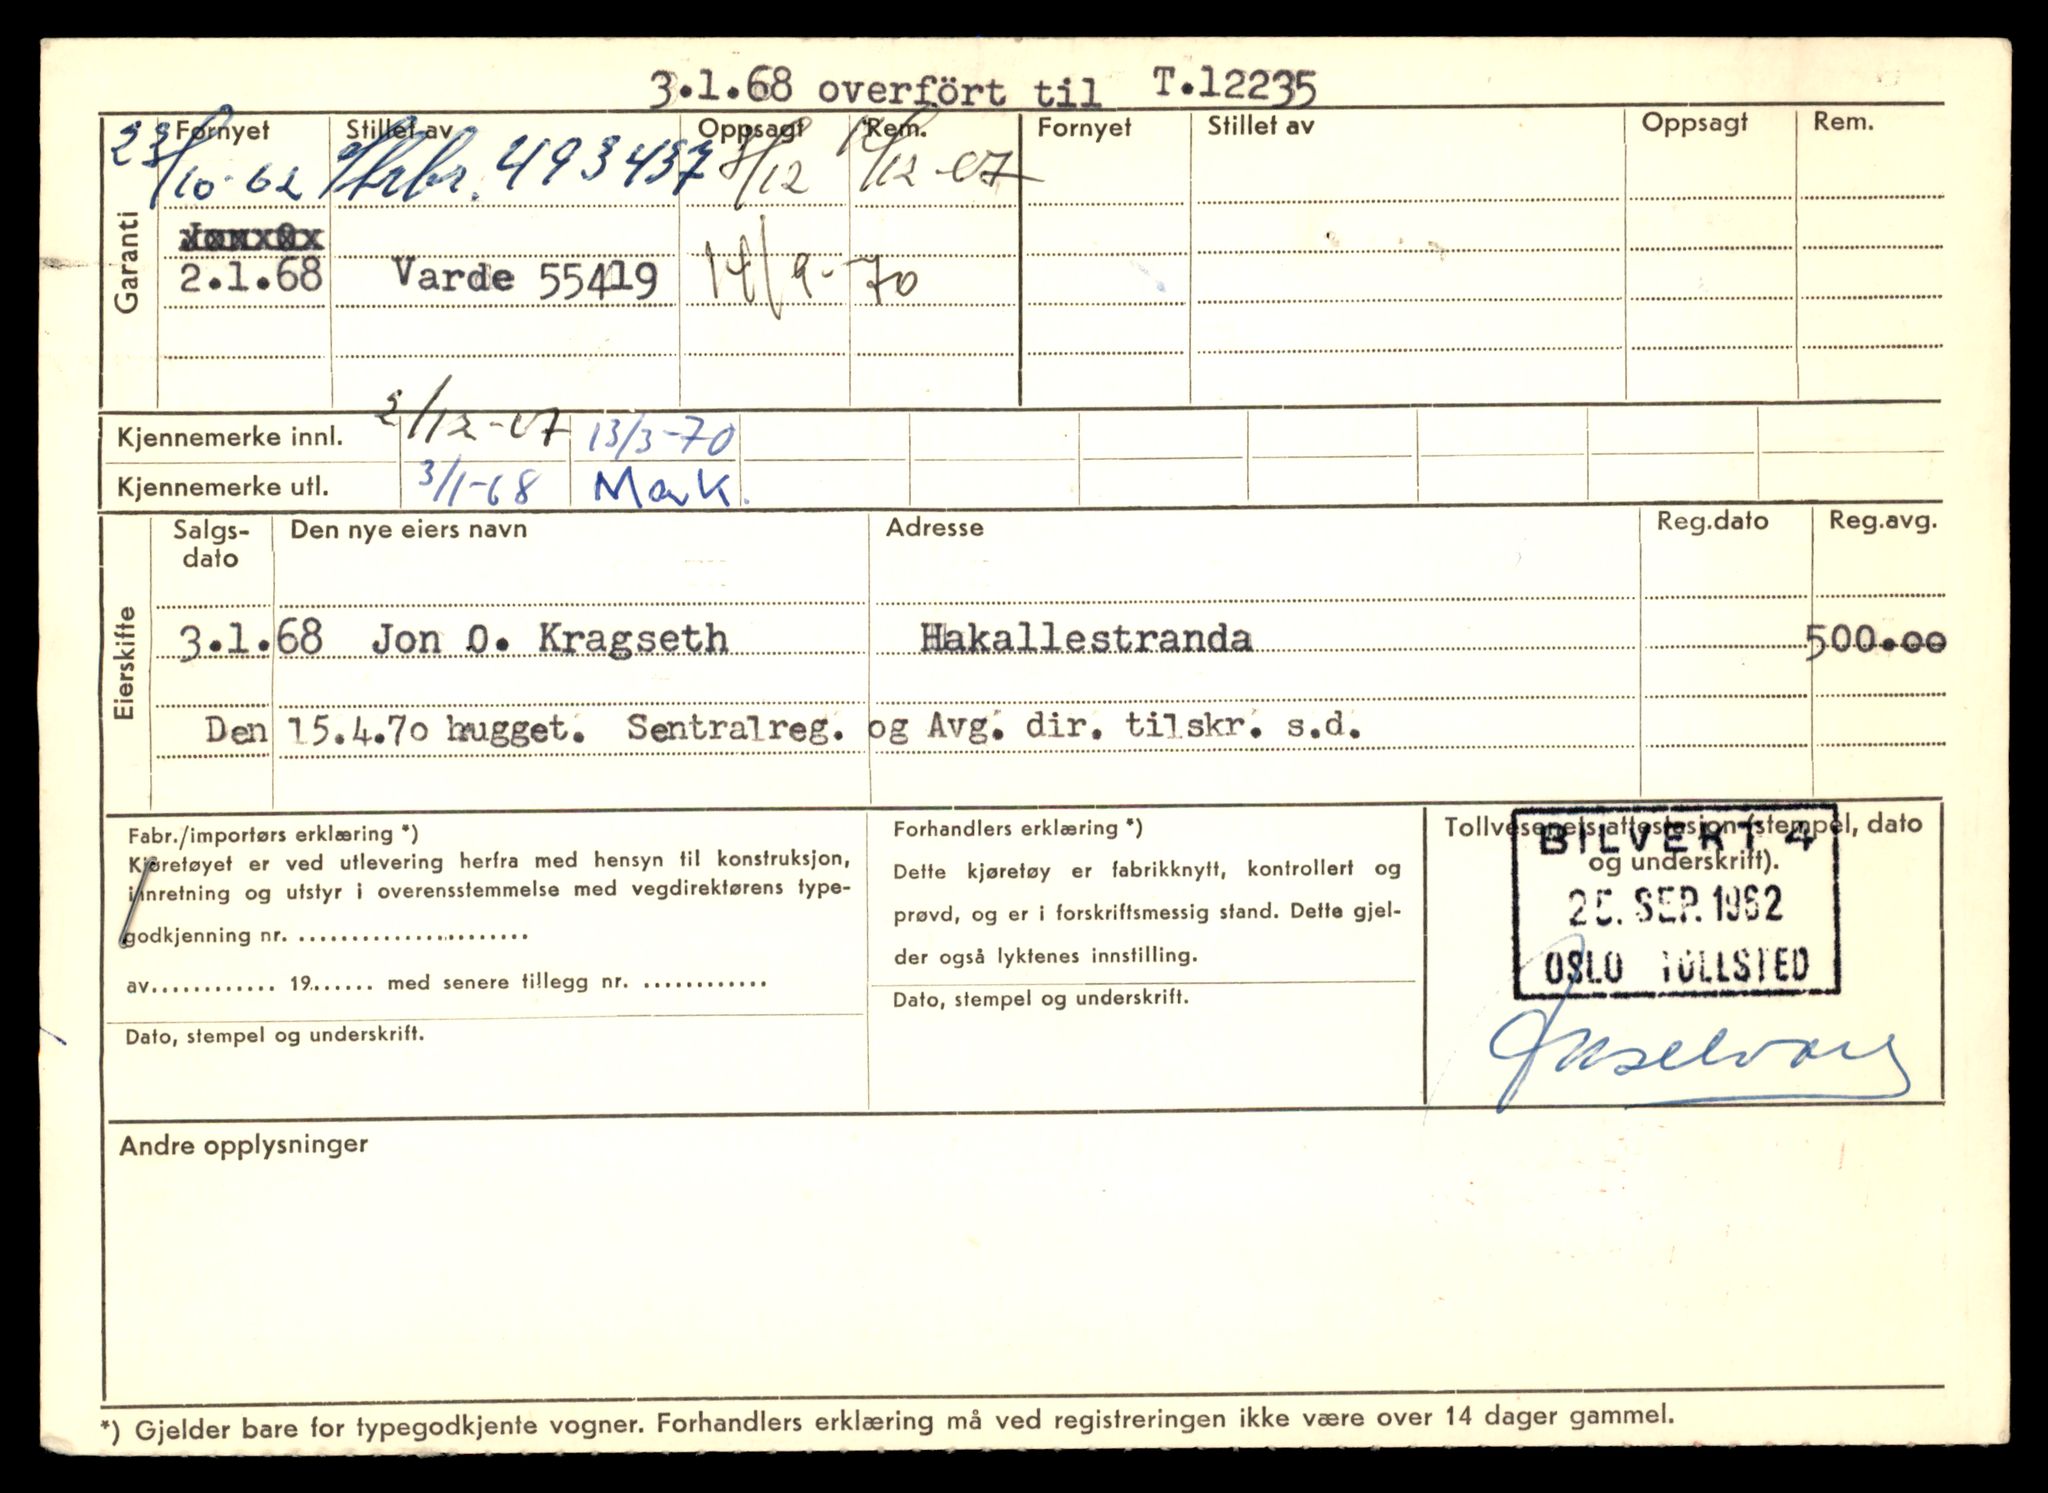 3.1.68 overfört til T.12235
Garanti
Fornyet Stillet av Oppsagt Rem. Fornyet Stillet av Oppsagt Rem.
23/10-62 493437 /12 /12-67
2.1.68 Varde 55419 14/9-70
Kjennemerke innl. 2/12-67 13/3-70
Kjennemerke utl. 3/1-68 Mark.
Eierskifte
Salgs-dato Den nye eiers navn Adresse Reg.dato Reg.avg.
3.1.68 Jon O. Kragseth Hakallestranda 500.00
Den 15.4.70 hugget. Sentralreg. og Avg. dir. tilskr. s.d.
Fabr./importørs erklæring *)
Kjøretøyet er ved utlevering herfra med hensyn til konstruksjon,
innretning og utstyr i overensstemmelse med vegdirektørens type-
godkjenning nr. ......................
av............ 19...... med senere tillegg nr. ............
Dato, stempel og underskrift.
Forhandlers erklæring *)
Dette kjøretøy er fabrikknytt, kontrollert og
prøvd, og er i forskriftsmessig stand. Dette gjel-
der også lyktenes innstilling.
Dato, stempel og underskrift.
Tollvesenets attestasjon (stempel, dato
og underskrift).
BILVERT 4
25. SEP. 1962
OSLO TOLLSTED
Andre opplysninger
*) Gjelder bare for typegodkjente vogner. Forhandlers erklæring må ved registreringen ikke være over 14 dager gammel.